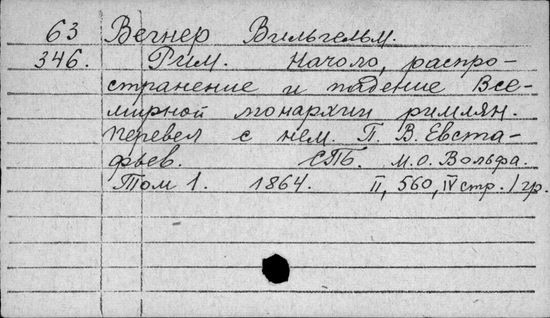 63 Вегнер Вильгельм.
346. Рим. Начало, распро-
странение и падение Все-
мирной монархии римлян.
Перевел с нем. П. В. Евста-
фьев. СПб. М.О. Вольфа.
Том 1. 1864. II, 560, IV стр. 1 гр.